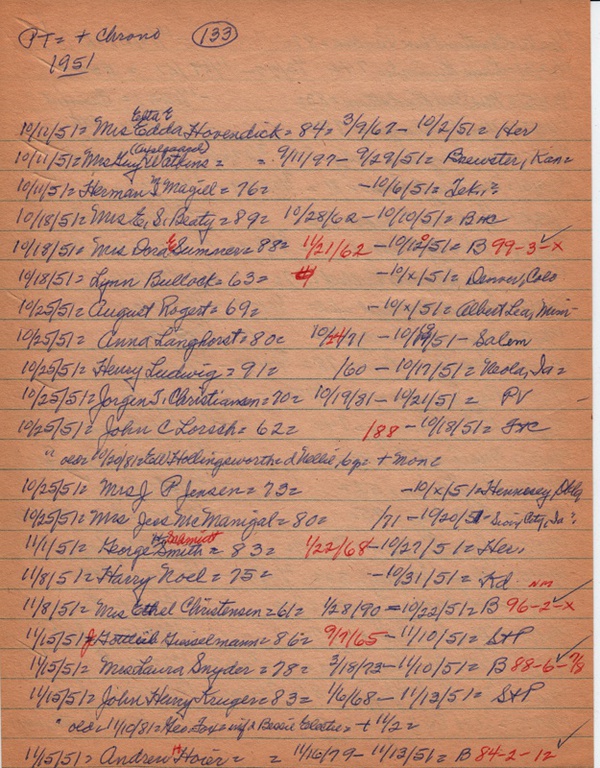 PT= + Chrono (133)
1951
Edda E
10/11/51= Mrs Edda Hovendick= 84= 3/9/67- 10/2/51= Her
10/11/51= Mrs Guy Watkins= =. 9/11/97- 9/29/51= Brewster, Kan=
10/11/51= Herman Magiel= 76= -10/6/51= Tek,?
10/18/51= Mrs E, S, Beaty= 89= 10/28/62-10/10/51= B
10/18/51= Mrs Dora E Sumner= 88= 11/21/62 -10/12/51= B 99-3-x
10/18/51= Lynn Bullock= 63= -10/x/51= Denver, Colo
10/25/51= August Rogert= 69= -10/x/51= Albert Lea, Minn-
10/25/51= Anna Langhorst= 80= 10/24/71 - 10/19/51- Salem
10/25/51= Henry Ludwig= 91= /60 - 10/17/51= Neola, Ia=
10/25/51= Jorgen J, Christiansen= 70= 10/19/81-10/21/51= PV -
10/25/51= John C Lorsch= 62= /88 -10/18/51=
" 10/20/81= Ed Hollingsworth= d Nellie, 6 + mon=
10/25/51= Mrs J P Jensen= 73= -10/x/51= Hennesey, Okla
10/25/51= Mrs Jess McManigal= 80= /71 - 10/20/51- Sioux City, Ia?
Schmidt
11/1/51= George Smith= 83= 1/22/68-10/27/51= Her,
11/8/51= Harry Noel= 75= -10/31/51= Ad NM
11/8/51= Mrs Ethel Christensen= 61= 1/28/90=10/22/51= B 96-2-x
11/15/51= J Gottlieb Giesselmann= 86= 9/7/65-11/10/51= S+P
11/15/51= Mrs Laura Snyder= 78= 3/18/73-11/10/51= B 88-6-7/8
11/15/51= John Henry Kruger= 83= 1/6/68-11/13/51= S+P
" 11/10/81= Geo. Fox= inf d Bessie + 11/2=
11/15/51= Andrew H Hoier= = 11/16/79-11/13/51= B 84-2-12